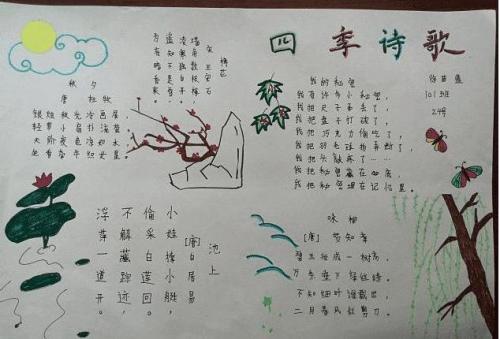 四季诗歌
101班
24号
秋夕
唐 杜牧
银烛秋光冷画屏
轻罗小扇扑流萤
天阶夜色凉如水
坐看牵牛织女星
梅花
宋 王安石
墙角数枝梅,
凌寒独自开。
遥知不是雪,
为有暗香来。
我的秘密
我有许多小秘密,
我把尺子弄丢了,
我把盘子打破了,
我把巧克力偷吃了,
我把羽毛球拍弄断了,
我把头 疼了……
我把秘密藏在心底,
我把秘密埋在记忆里。
池上
[唐]白居易
小娃撑小艇,
偷采白莲回。
不解藏踪迹,
浮萍一道开。
咏柳
[唐] 贺知章
碧玉妆成一树高,
万条垂下绿丝绦。
不知细叶谁裁出,
二月春风似剪刀。